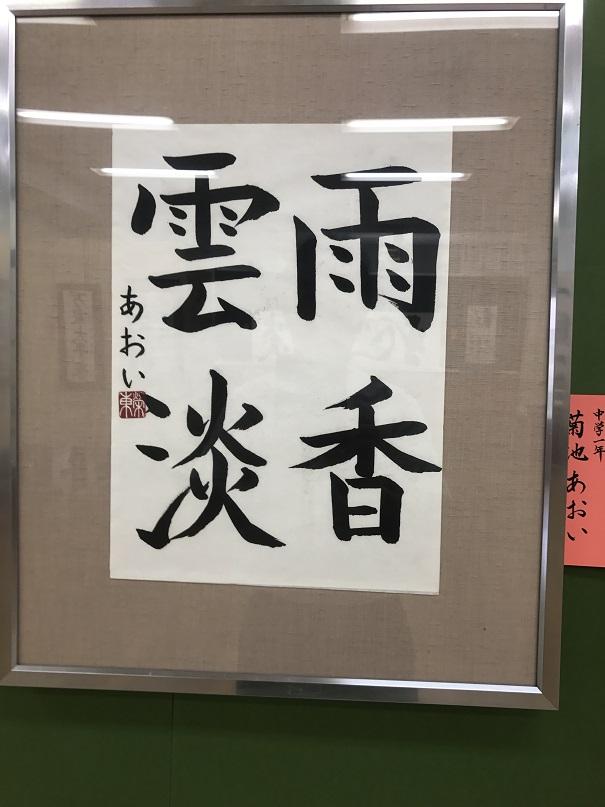 雨香
雲淡
あおい
中学一年
菊池あおい